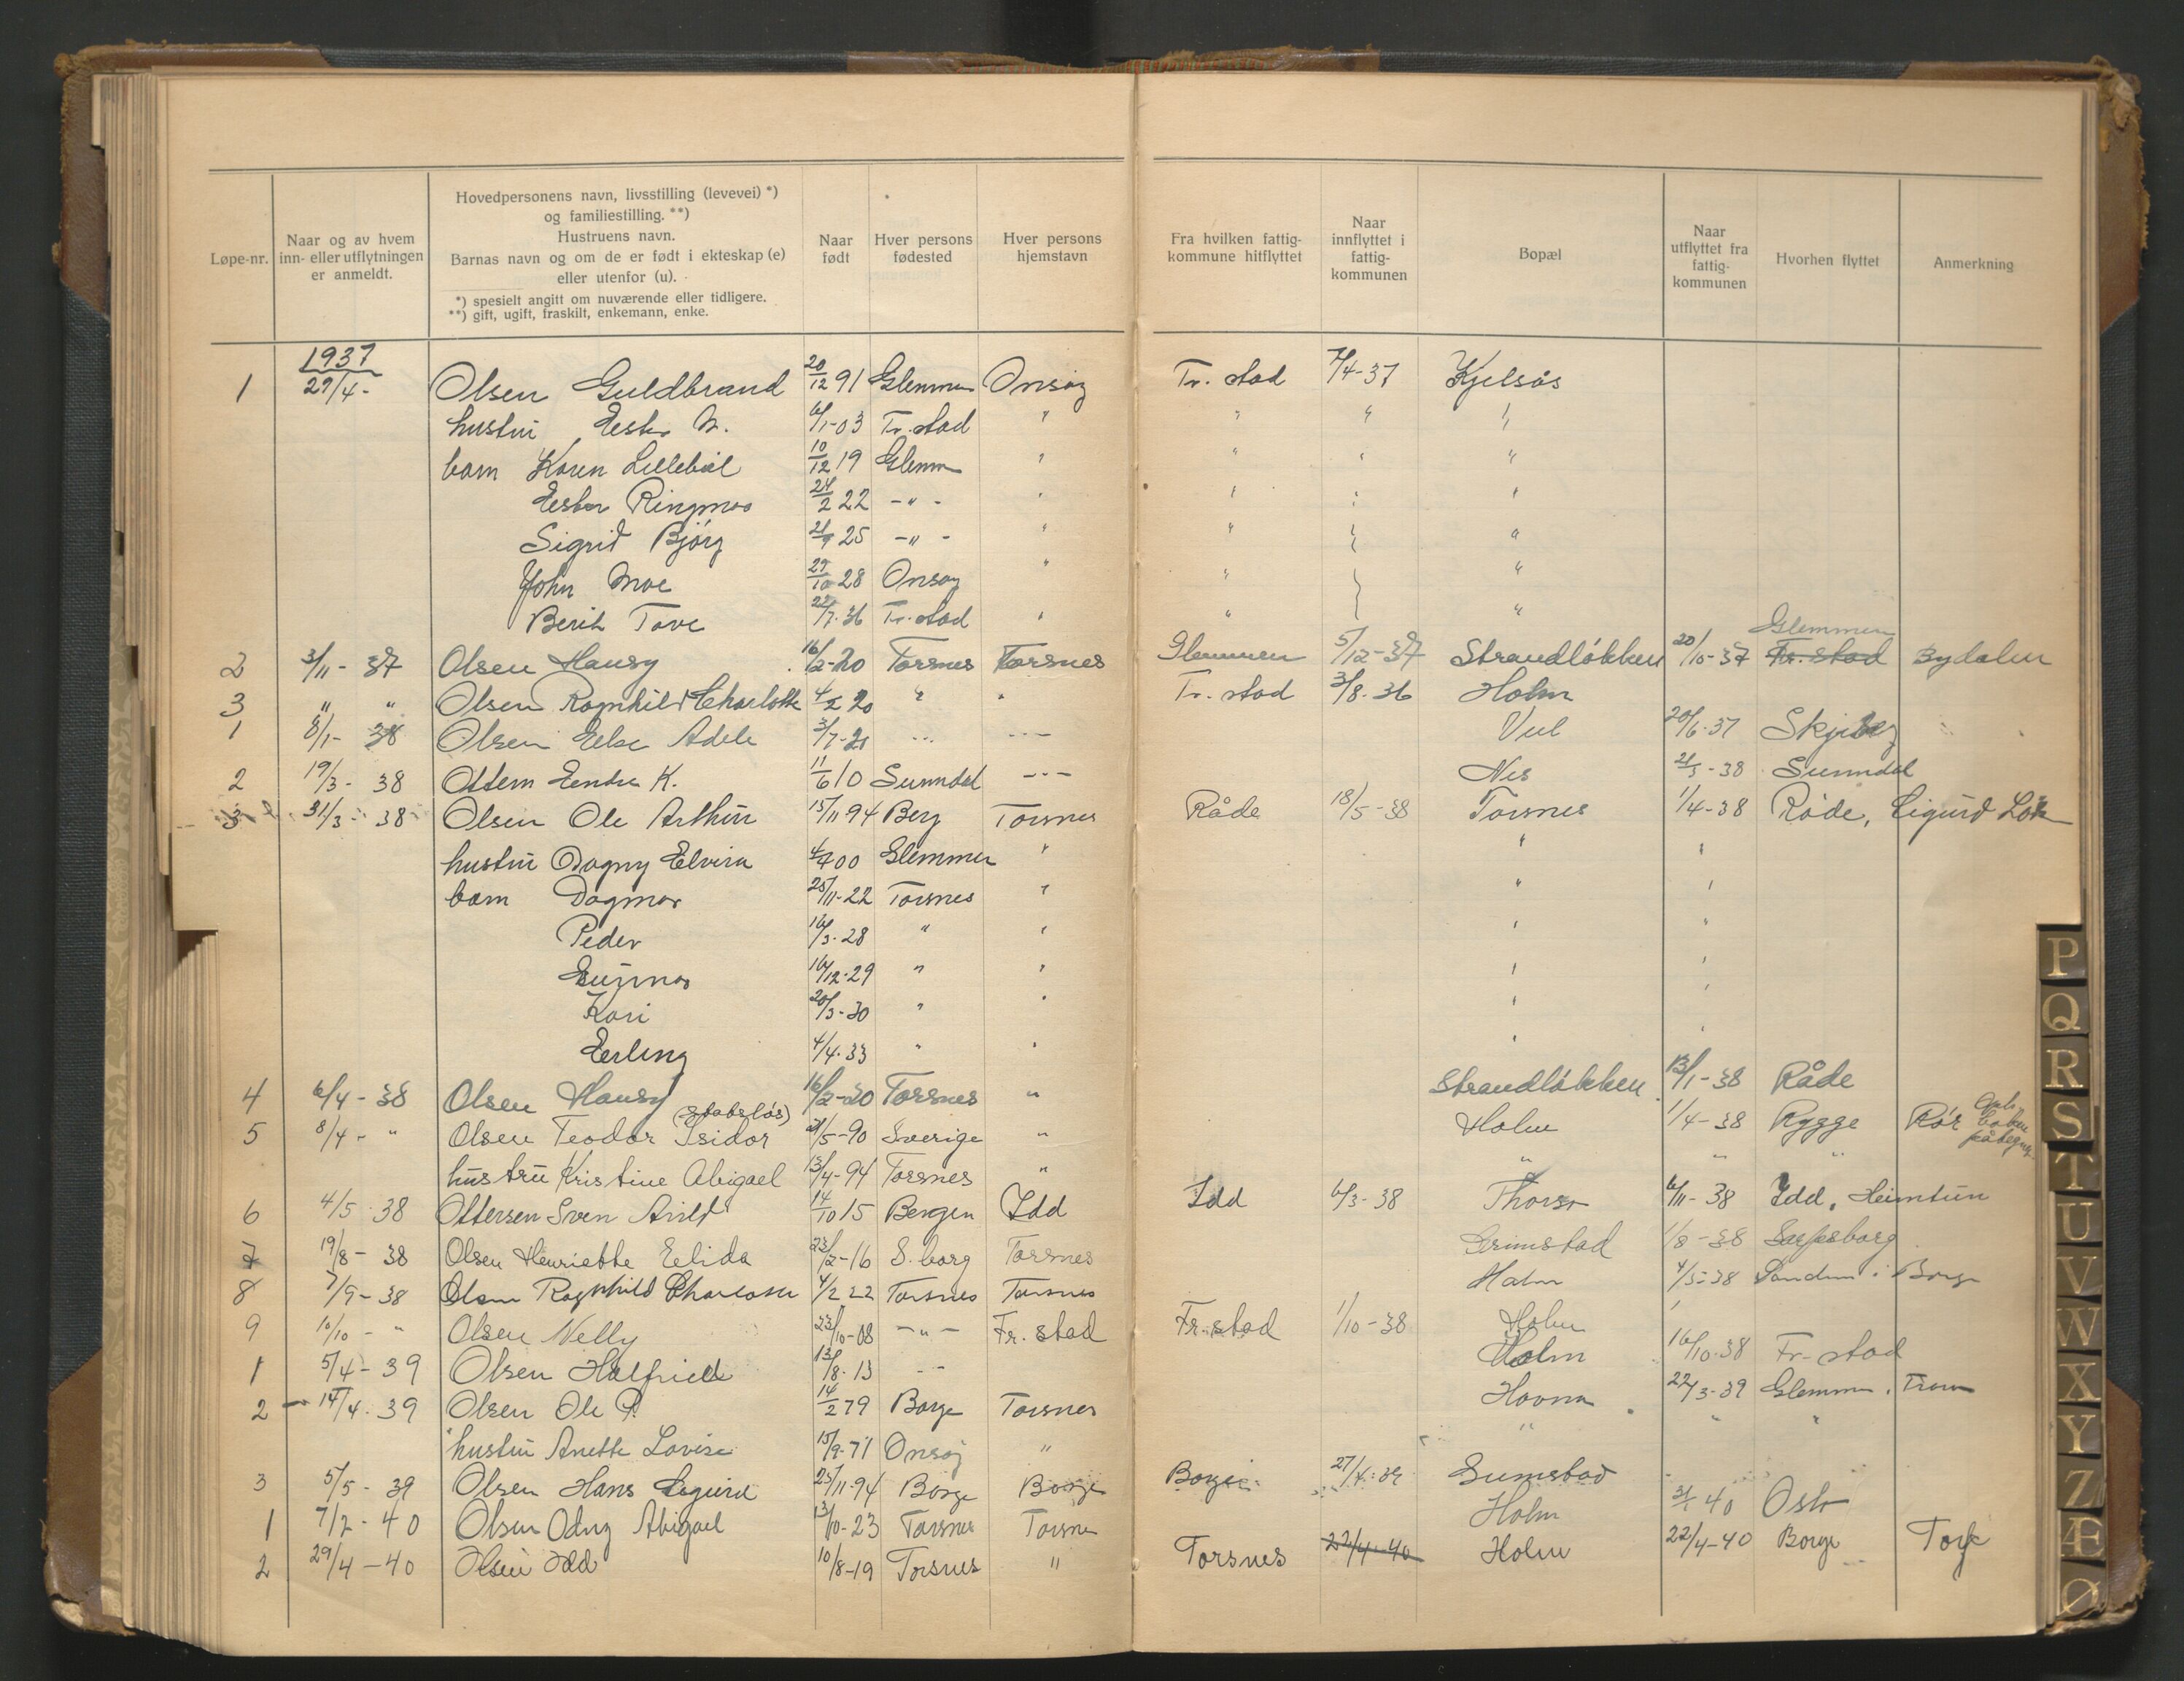 Løpe-nr. Naar og av hvem inn- eller utflytningen er anmeldt. Hovedpersonens navn, livsstilling (levevei) *) og familiestilling. **) Hustruens navn. Barnas navn og om de er født i ekteskap (e) eller utenfor (u). *) spesielt angitt om nuværende eller tidligere. **) gift, ugift, fraskilt, enkemann, enke. Naar født Hver persons fødested Hver persons hjemstavn Fra hvilken fattigkommune hitflyttet Naar innflyttet i fattigkommunen Bopæl Naar utflyttet fra fattigkommunen Hvorhen flyttet Anmerkning
1937
1 29/4- Olsen Guldbrand 20/12 91 Glemmen Onsøy Fr. stad 7/4-37 Kjelsås
hustru Ester M. 6/1-03 Fr. stad " " " "
barn Karen Lillebil 10/12 19 Glemm " " " "
Ester Ringmor 24/2 22 -"- " " " "
Sigrid Bjørg 21/9 25 -"- " " " "
John Moe 27/10 28 Onsøy " " " "
Berit Tove 22/7-36 Fr. stad " " " "
Glemmen
2 3/11-37 Olsen Hansy 16/2-20 Torsnes Torsnes Glemmen 5/12-37 Strandløkken 20/10-37 Fr. stad Bydalen
3 " " Olsen Ragnhild Charlotte 4/2 20 " " Fr. stad 3/8-36 Holm
1 8/1-38 Olsen Else Adele 3/7-21 --- --- Vul 20/6-37 Skjeberg
2 19/3-38 Ottem Endre K. 11/6 10 Sunndal --- Nes 21/3-38 Sunndal
3 2 31/3-38 Olsen Ole Arthur 15/11 94 Berg Torsnes Råde 18/5-38 Torsnes 1/4-38 Råde, Sigurd
hustru Dagny Elvira 4/4 00 Glemmen " " "
barn Dagmar 25/11-22 Torsnes " " "
Peder 16/3-28 " " " "
Gunnar 16/12-29 " " " "
Kari 20/3-30 " " " "
Erling 4/4-33 " " " "
4 6/4-38 Olsen Hansy 16/2-20 Torsnes " Strandløkken 13/1-38 Råde
(statsløs)
5 8/4-" Olsen Teodor Isidor 21/5-90 Sverige " Holm 1/4-38 Rygge Rør
hustru Kristine Abigael 13/4-94 Torsnes " " " "
6 4/5-38 Ottersen Sven Arild 14/10 15 Bergen Idd Idd 6/3-38 Thorsø 6/11-38 Idd, Heimtun
7 19/8-38 Olsen Henriette Elida 23/2-16 S. borg Torsnes Grimstad 1/8-38 Sarpsborg
8 7/9-38 Olsen Ragnhild Charlotte 4/2 22 Torsnes Torsnes Holm 4/5-38 Sandem i Borge
9 10/10-" Olsen Nelly 23/10-08 -"- Fr. stad Fr. stad 1/10-38 Holm
1 5/4-39 Olsen Halfrid 13/8-13 -- Holm 16/10-38 Fr. stad
2 14/4-39 Olsen Ole P. 14/2 79 Borge Torsnes Havna 22/3-39 Glemmen
hustru Anette Lovise 15/9-71 Onsøy " " " "
3 5/5-39 Olsen Hans Sigurd 25/11-94 Borge Borge Borge 27/4-39 Grimstad
1 7/2-40 Olsen Odny Abigael 13/10-23 Torsnes Torsnes Holm 31/1 40 Oslo
2 29/4-40 Olsen Odd 10/8-19 Torsnes " Torsnes 22/4-40 Holm 22/4-40 Borge Torp
P
Q
R
S
T
U
V
W
X
Y
Z
Æ
Ø